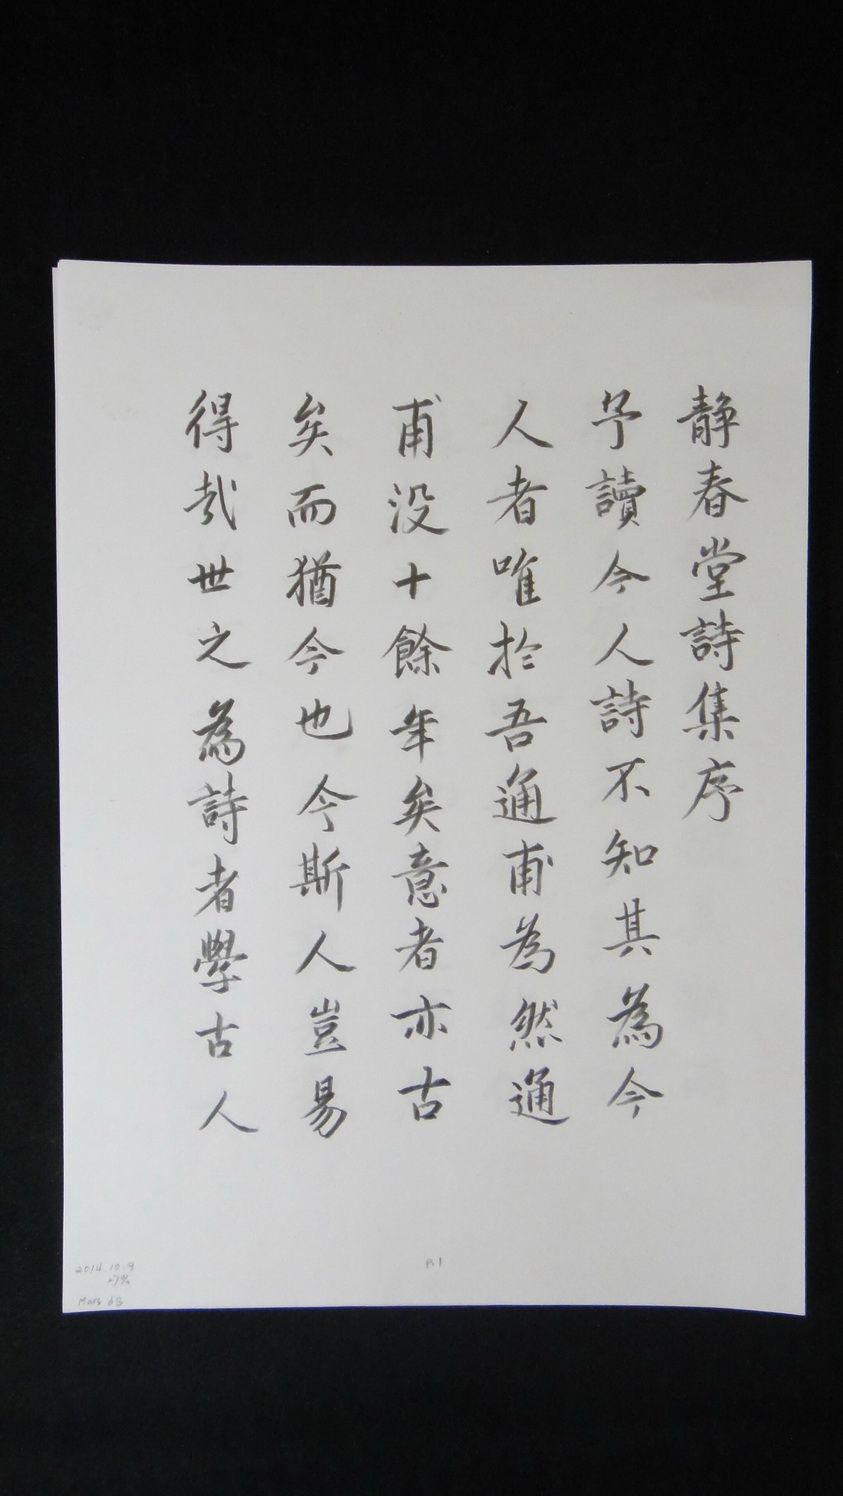 静春堂詩集序
予讀今人詩不知其為今
人者唯於吾通甫為然通
甫没十餘年矣意者亦古
矣而猶今也今斯人豈易
得哉世之為詩者學古人
P.1
2014.10.9